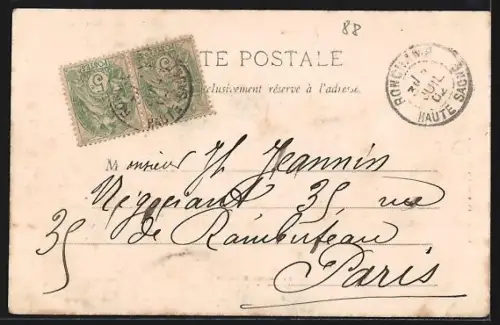 88
TE POSTALE
exclusivement réservé à l'adresse.
RONCHAMP
3E
JUIL
02
HAUTE SAONE
5
5
HAUTE
Monsieur H. Jeannin
Négociant 35 rue
35 de Rambuteau
Paris